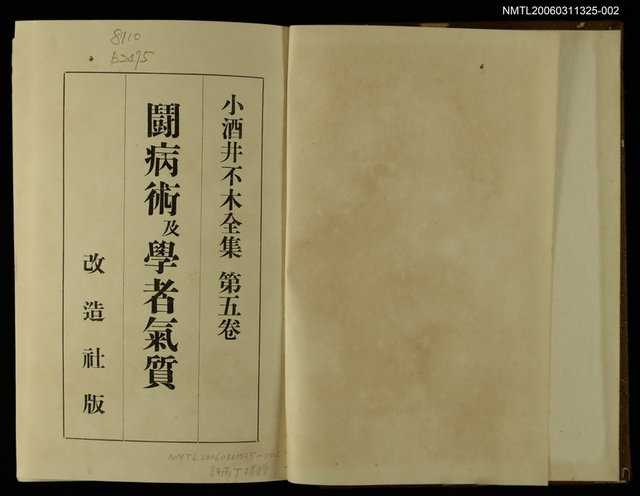 NMTL20060311325-002
8710
小酒井不木全集 第五卷
鬪病術及學者氣質
改造社版
NMTL20060311325-002